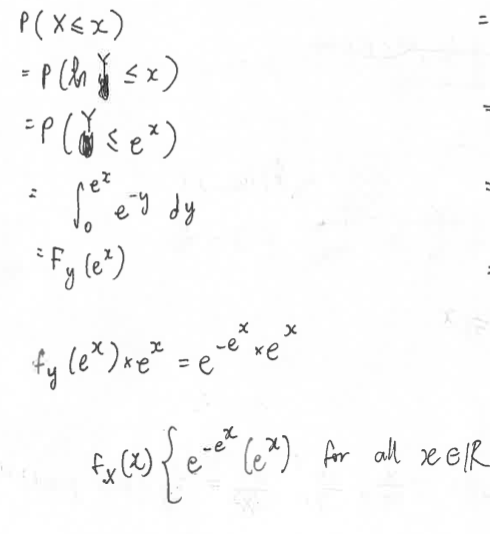 P(X≤x)
= P(ln Y ≤ x)
= P(Y ≤ e^x)
= ∫_0^{e^x} e^{-y} dy
= F_y(e^x)
f_y(e^x) × e^x = e^{-e^x} × e^x
f_X(x) { e^{-e^x}(e^x) for all x∈ℝ
=
=
=
=